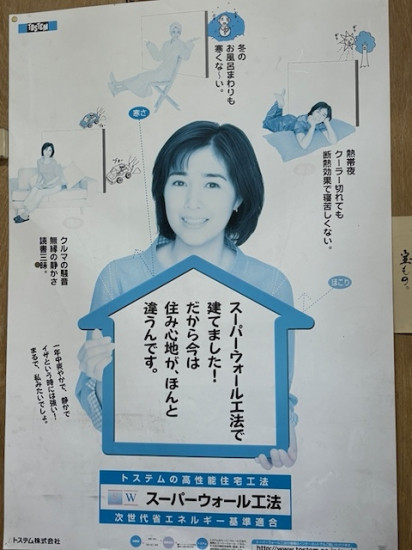 TOSTEM
冬の
お風呂まわりも
寒くな〜い。
寒さ
熱帯夜
クーラー切れても
断熱効果で寝苦しくない。
クルマの騒音
無縁の静かさ
読書三昧。
ほこり
スーパーウォール工法で
建てました！
だから今は
住み心地が、ほんと
違うんです。
一年中爽やかで、静かで
イザという時には強い！
まるで、私みたいでしょ。
トステムの高性能住宅工法
W スーパーウォール工法
次世代省エネルギー基準適合
トステム株式会社